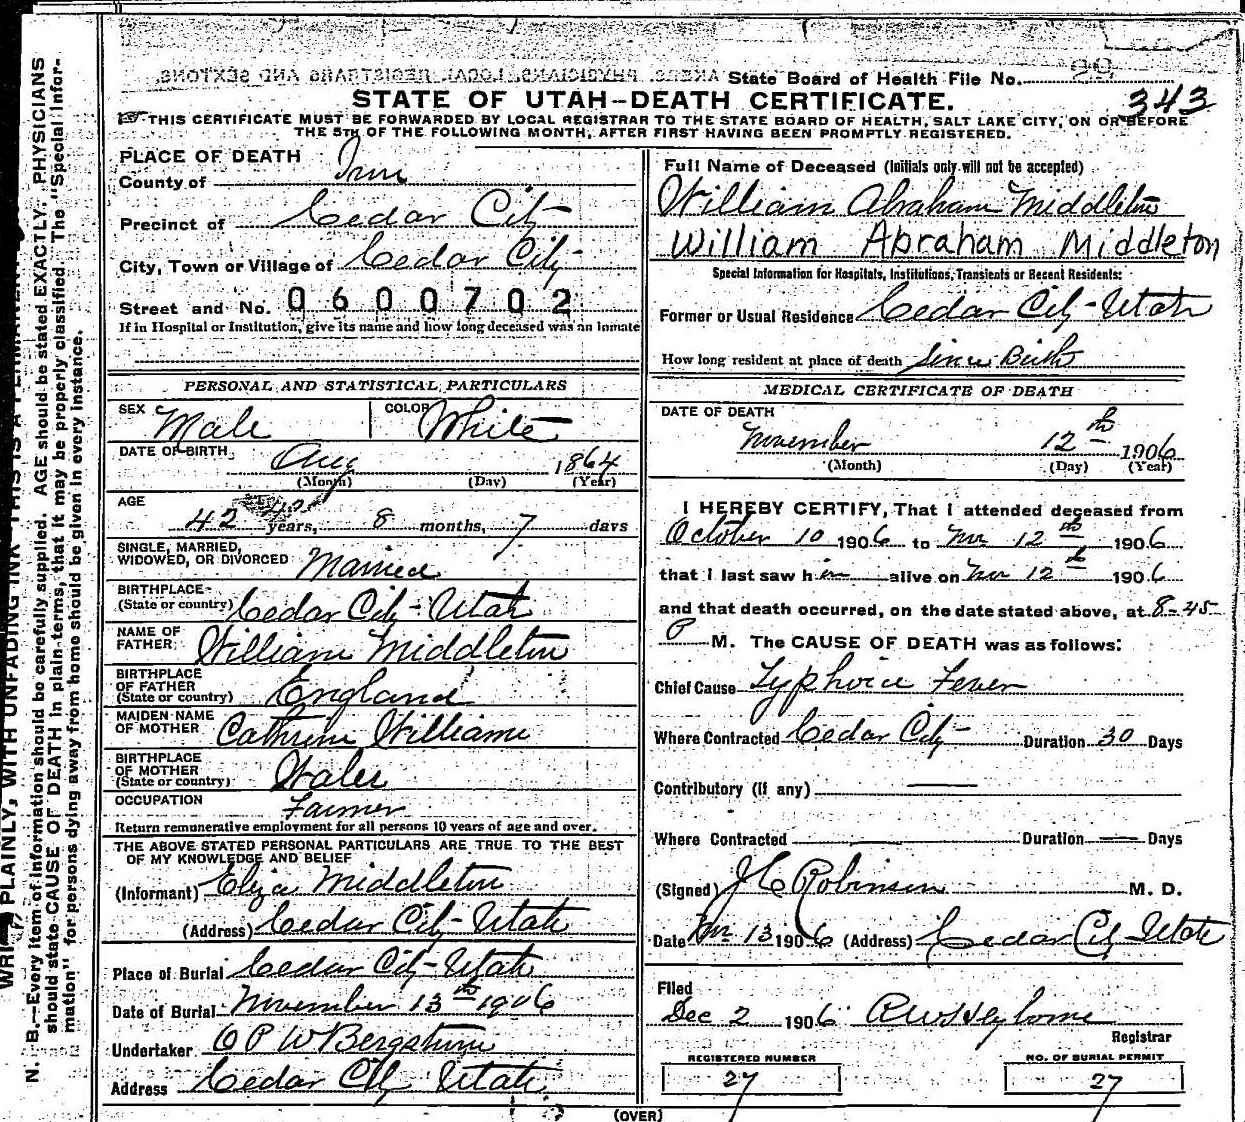 AKERS, PHYSICIANS, LOCAL REGISTRARS AND SEXTONS.
State Board of Health File No.
343
STATE OF UTAH—DEATH CERTIFICATE.
THIS CERTIFICATE MUST BE FORWARDED BY LOCAL REGISTRAR TO THE STATE BOARD OF HEALTH, SALT LAKE CITY, ON OR BEFORE
THE 5TH OF THE FOLLOWING MONTH, AFTER FIRST HAVING BEEN PROMPTLY REGISTERED.
PLACE OF DEATH
County of Iron
Precinct of Cedar City
City, Town or Village of Cedar City
Street and No. 0600702
If in Hospital or Institution, give its name and how long deceased was an inmate
PERSONAL AND STATISTICAL PARTICULARS
SEX Male COLOR White
DATE OF BIRTH Aug 1864
(Month) (Day) (Year)
AGE 42 years, 8 months, 7 days
SINGLE, MARRIED,
WIDOWED, OR DIVORCED Married
BIRTHPLACE
(State or country) Cedar City - Utah
NAME OF
FATHER William Middleton
BIRTHPLACE
OF FATHER
(State or country) England
MAIDEN NAME
OF MOTHER Cathrine Williams
BIRTHPLACE
OF MOTHER
(State or country) Wales
OCCUPATION Farmer
Return remunerative employment for all persons 10 years of age and over.
THE ABOVE STATED PERSONAL PARTICULARS ARE TRUE TO THE BEST
OF MY KNOWLEDGE AND BELIEF
(Informant) Eliza Middleton
(Address) Cedar City - Utah
Place of Burial Cedar City - Utah
Date of Burial November 13th 1906
Undertaker O P W Bergstrom
Address Cedar City Utah
Full Name of Deceased (Initials only will not be accepted)
William Abraham Middleton
William Abraham Middleton
Special Information for Hospitals, Institutions, Transients or Recent Residents:
Former or Usual Residence Cedar City - Utah
How long resident at place of death Since Birth
MEDICAL CERTIFICATE OF DEATH
DATE OF DEATH
November 12th 1906
(Month) (Day) (Year)
I HEREBY CERTIFY, That I attended deceased from
October 10 1906 to Nov 12th 1906
that I last saw him alive on Nov 12th 1906
and that death occurred, on the date stated above, at 8-45
P M. The CAUSE OF DEATH was as follows:
Chief Cause Typhoid Fever
Where Contracted Cedar City Duration 30 Days
Contributory (if any) —
Where Contracted — Duration — Days
(Signed) J C Robinson M. D.
Date Nov 13 1906 (Address) Cedar City - Utah
Filed
Dec 2 1906
Registrar
REGISTERED NUMBER NO. OF BURIAL PERMIT
27 27
(OVER)
PLAINLY, WITH UNFADING INK—THIS IS A PERMANENT
N. B.—Every item of information should be carefully supplied. AGE should be stated EXACTLY. PHYSICIANS
should state CAUSE OF DEATH in plain terms, that it may be properly classified. The "Special Infor-
mation" for persons dying away from home should be given in every instance.